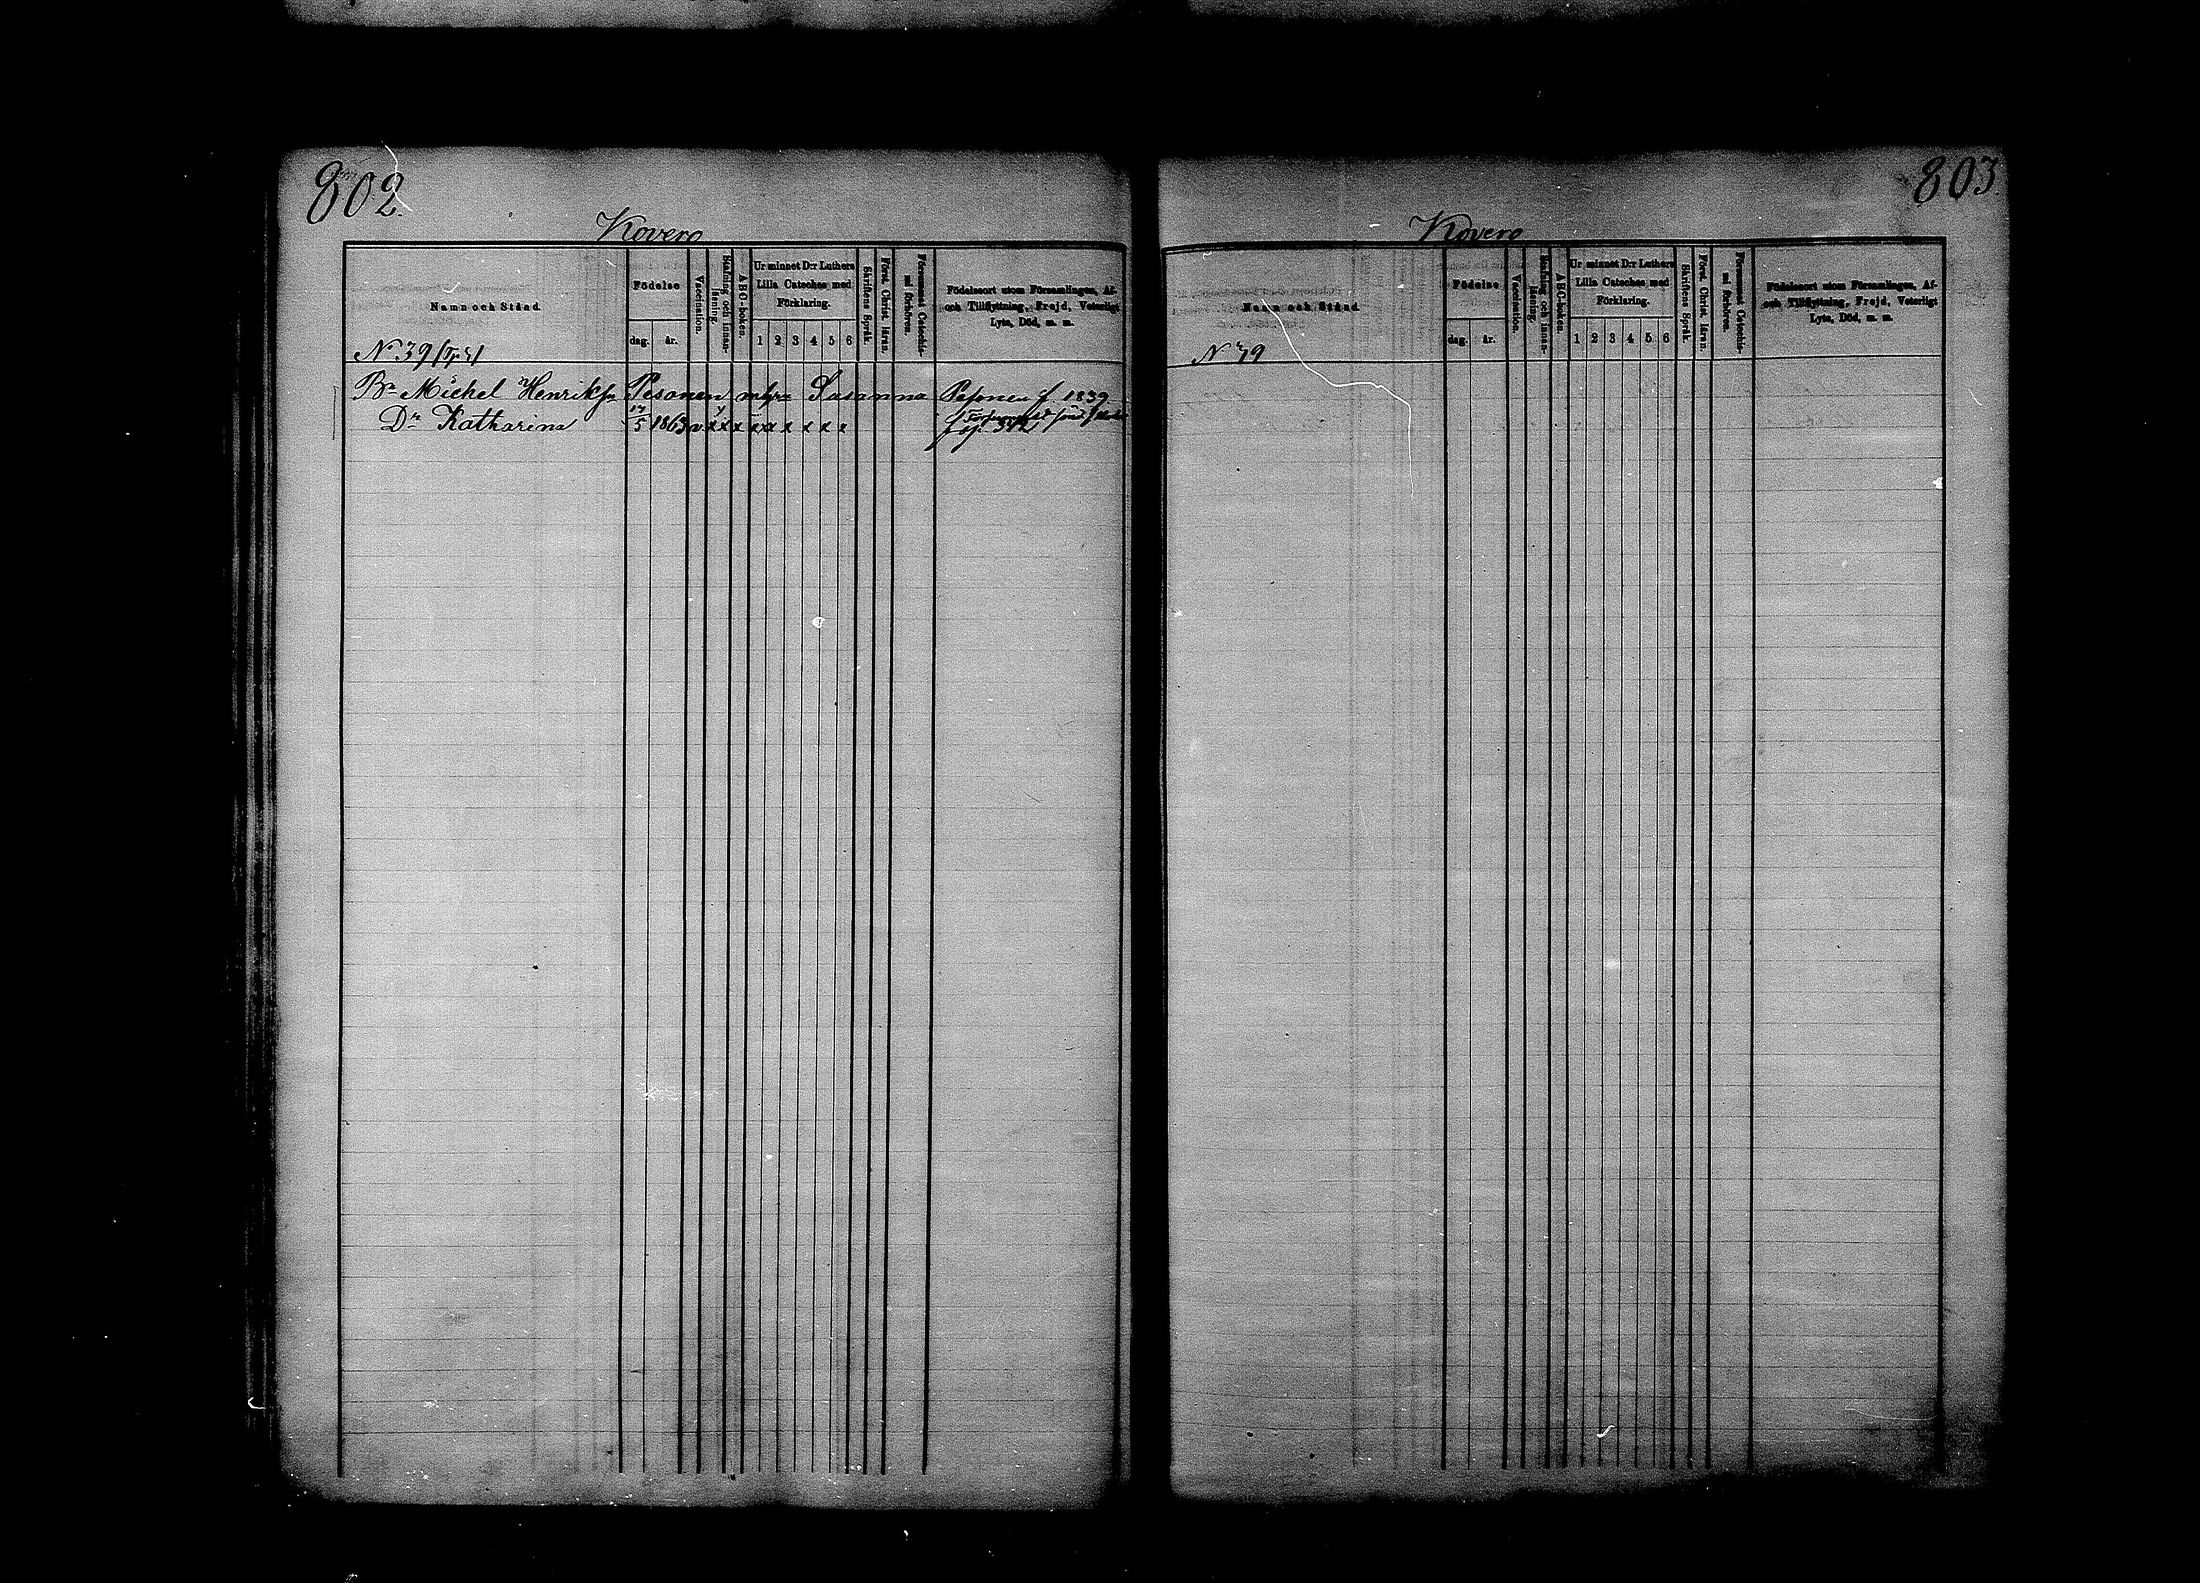 802
Kovero
Namn och Stånd.
Födelse
dag.
år.
Vaccination.
Stafning och innan-
läsning.
ABC-boken.
Ur minnet D:r Luthers
Lilla Cateches med
Förklaring.
1 2 3 4 5 6
Skriftens Språk.
Först. Christ. läran.
Försummat Catechis-
mi förhören.
Födelseort utom Församlingen, Af-
och Tillflyttning, Frejd, Veterligt
Lyte, Död, m. m.
N 39
Bn Michel Henriks Pesonen Susanna Pesonen f 1839
Dr Katharina 5 1863 v x x x x x x x x x
803
Kovero
Namn och Stånd.
Födelse
dag.
år.
Vaccination.
Stafning och innan-
läsning.
ABC-boken.
Ur minnet D:r Luthers
Lilla Cateches med
Förklaring.
1 2 3 4 5 6
Skriftens Språk.
Först. Christ. läran.
Försummat Catechis-
mi förhören.
Födelseort utom Församlingen, Af-
och Tillflyttning, Frejd, Veterligt
Lyte, Död, m. m.